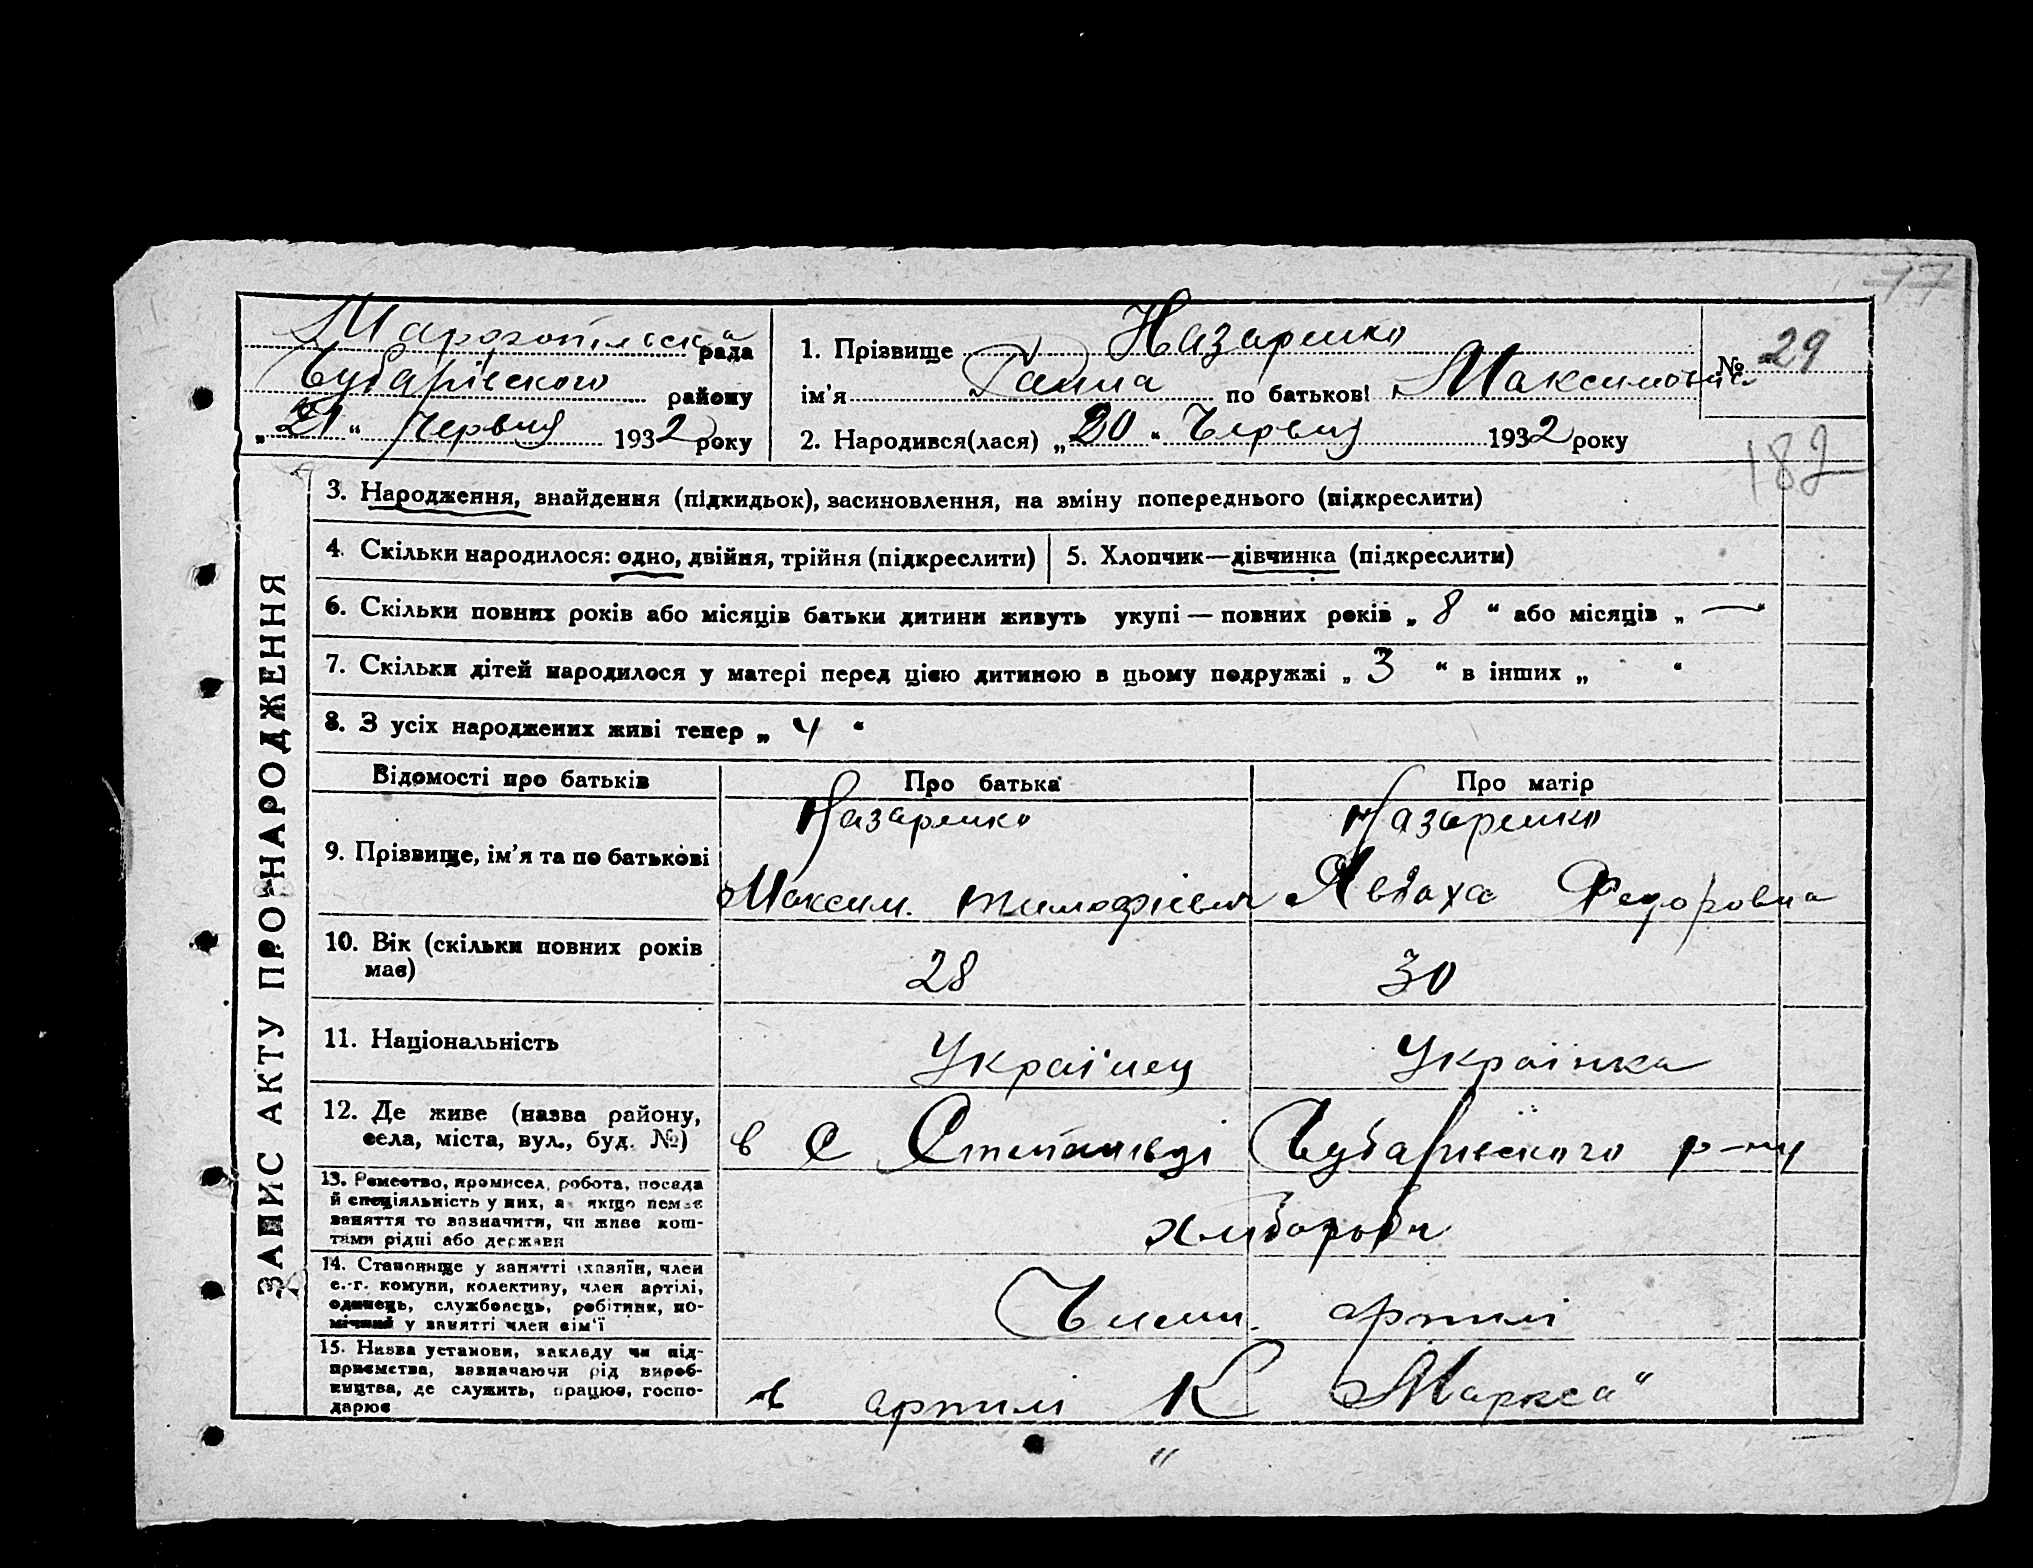 77
Марфопільська рада
Чубарівского району
„21“ Червня 1932 року
1. Прізвище Назаренко
ім'я Ганна по батькові Максимовна
№ 29
2. Народився(лася) „20“ Червня 1932 року
182
ЗАПИС АКТУ ПРО НАРОДЖЕННЯ
3. Народження, знайдення (підкидьок), засиновлення, на зміну попереднього (підкреслити)
4. Скільки народилося: одно, двійня, трійня (підкреслити)
5. Хлопчик—дівчинка (підкреслити)
6. Скільки повних років або місяців батьки дитини живуть укупі — повних років „8“ або місяців „—“
7. Скільки дітей народилося у матері перед цією дитиною в цьому подружжі „3“ в інших „ “
8. З усіх народжених живі тепер „4“
Відомості про батьків
Про батька
Про матір
9. Прізвище, ім'я та по батькові
Назаренко
Максим. Тимофієвич
Назаренко
Явдоха Федоровна
10. Вік (скільки повних років
має)
28
30
11. Національність
Українец
Українка
12. Де живе (назва району,
села, міста, вул., буд. №)
в с Степанівці Чубарівского р-ну
13. Ремество, промисел, робота, посада
й спеціяльність у них, а якщо немає
заняття то зазначити, чи живе кош-
тами рідні або держави
хлібороби
14. Становище у занятті (хазяїн, член
с.-г. комуни, колективу, член артілі,
одинець, службовець, робітник, по-
мічний у занятті член сім'ї
Члени. артілі
15. Назва установи, закладу чи під-
приємства, зазначаючи рід вироб-
ництва, де служить, працює, госпо-
дарює
в артілі „К Маркса“